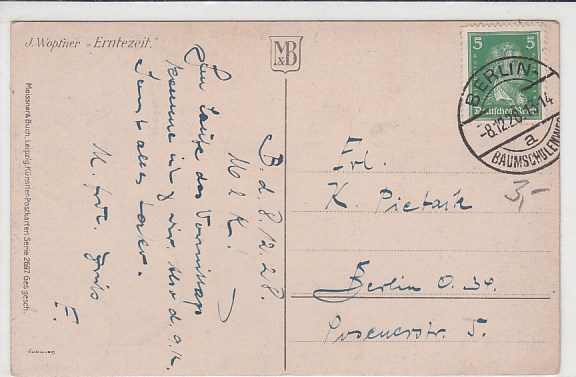 J. Wopfner „Erntezeit."
M&B
Meissner & Buch, Leipzig-Künstler-Postkarten Serie 2687 Ges. gesch.
5 5
Deutsches Reich
BERLIN-
-8.12.28
14
a
BAUMSCHULENWEG
3,-
B. d. 8.12.28.
M. l. K!
Im Laufe des Vormittags
komme ich
Sonst alles
M. frdl. Gruß
F.
Frl.
K. Pietzik
Berlin O. 34.
Posenerstr. 5.